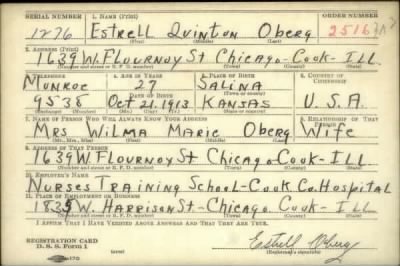 SERIAL NUMBER 1. NAME (Print) ORDER NUMBER
1276 ESTRELL QUINTON OBERG 2516
(First) (Middle) (Last)
2. ADDRESS (Print)
1639 W. FLOURNOY ST CHICAGO-COOK-ILL.
(Number and street or R. F. D. number) (Town) (County) (State)
3. TELEPHONE 4. AGE IN YEARS 5. PLACE OF BIRTH 6. COUNTRY OF CITIZENSHIP
MUNROE 27 SALINA
DATE OF BIRTH (Town or county)
9538 OCT 21, 1913 KANSAS U.S.A.
(Mo.) (Day) (Yr.) (State or country)
7. NAME OF PERSON WHO WILL ALWAYS KNOW YOUR ADDRESS 8. RELATIONSHIP OF THAT PERSON
MRS WILMA MARIE OBERG WIFE
(Mr., Mrs., Miss) (First) (Middle) (Last)
9. ADDRESS OF THAT PERSON
1639 W. FLOURNOY ST CHICAGO COOK-ILL
(Number and street or R. F. D. number) (Town) (County) (State)
10. EMPLOYER'S NAME
NURSES TRAINING SCHOOL-COOK CO. HOSPITAL
11. PLACE OF EMPLOYMENT OR BUSINESS
1835 W. HARRISON ST-CHICAGO COOK-ILL
(Number and street or R. F. D. number) (Town) (County) (State)
I AFFIRM THAT I HAVE VERIFIED ABOVE ANSWERS AND THAT THEY ARE TRUE.
REGISTRATION CARD
D. S. S. Form 1
Estrell Oberg
(Registrant's signature)